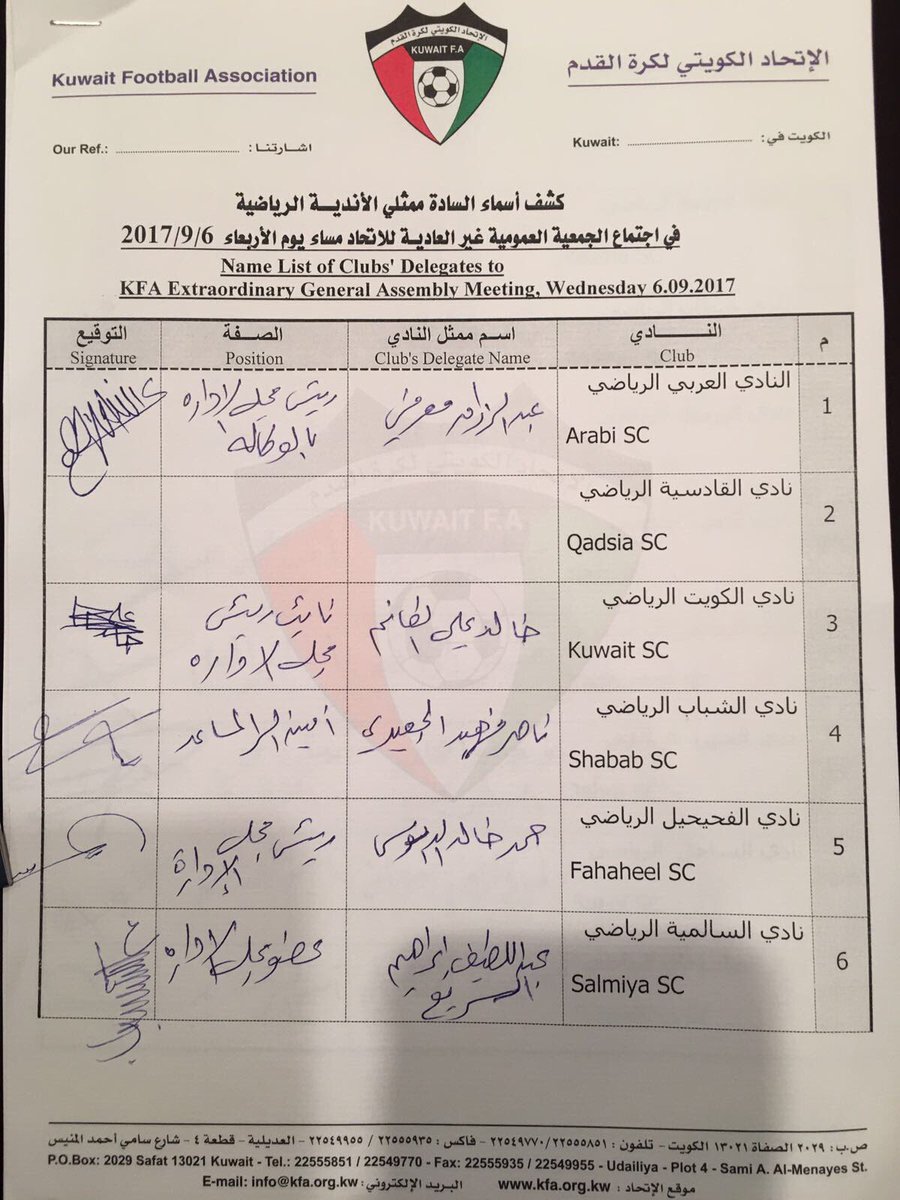 الإتحاد الكويتي لكرة القدم
KUWAIT F.A
Kuwait Football Association
الإتحاد الكويتي لكرة القدم
Our Ref.: ........................ اشارتنا :
Kuwait: ........................ الكويت في:
كشف أسماء السادة ممثلي الأنديــة الرياضية
في اجتماع الجمعية العمومية غير العادية للاتحاد مساء يوم الأربعاء 2017/9/6
Name List of Clubs' Delegates to
KFA Extraordinary General Assembly Meeting, Wednesday 6.09.2017
م النــــادي اسم ممثل النادي الصــفــة التوقيع
Club Club's Delegate Name Position Signature
1 النادي العربي الرياضي
Arabi SC
عبدالرزاق معرفي
رئيس مجلس الإداره
بالوكاله
2 نادي القادسية الرياضي
Qadsia SC
3 نادي الكويت الرياضي
Kuwait SC
خالد علي الغانم
نائب رئيس
مجلس الاداره
4 نادي الشباب الرياضي
Shabab SC
ناصر فهيد
أمين السر المساعد
5 نادي الفحيحيل الرياضي
Fahaheel SC
حمد خالد الدبوس
رئيس مجلس
الإدارة
6 نادي السالمية الرياضي
Salmiya SC
عبداللطيف إبراهيم
السريع
عضو مجلس الاداره
KUWAIT F.A
ص.ب: ٢٠٢٩ الصفاة ١٣٠٢١ الكويت - تلفون : ٢٢٥٤٩٧٧٠/٢٢٥٥٥٨٥١ - فاكس : ٢٢٥٥٥٩٣٥ / ٢٢٥٤٩٩٥٥ - العديلية - قطعة ٤ - شارع سامي أحمد المنيس
P.O.Box: 2029 Safat 13021 Kuwait - Tel.: 22555851 / 22549770 - Fax: 22555935 / 22549955 - Udailiya - Plot 4 - Sami A. Al-Menayes St.
E-mail: info@kfa.org.kw البريد الإلكتروني: www.kfa.org.kw موقع الإتحاد :